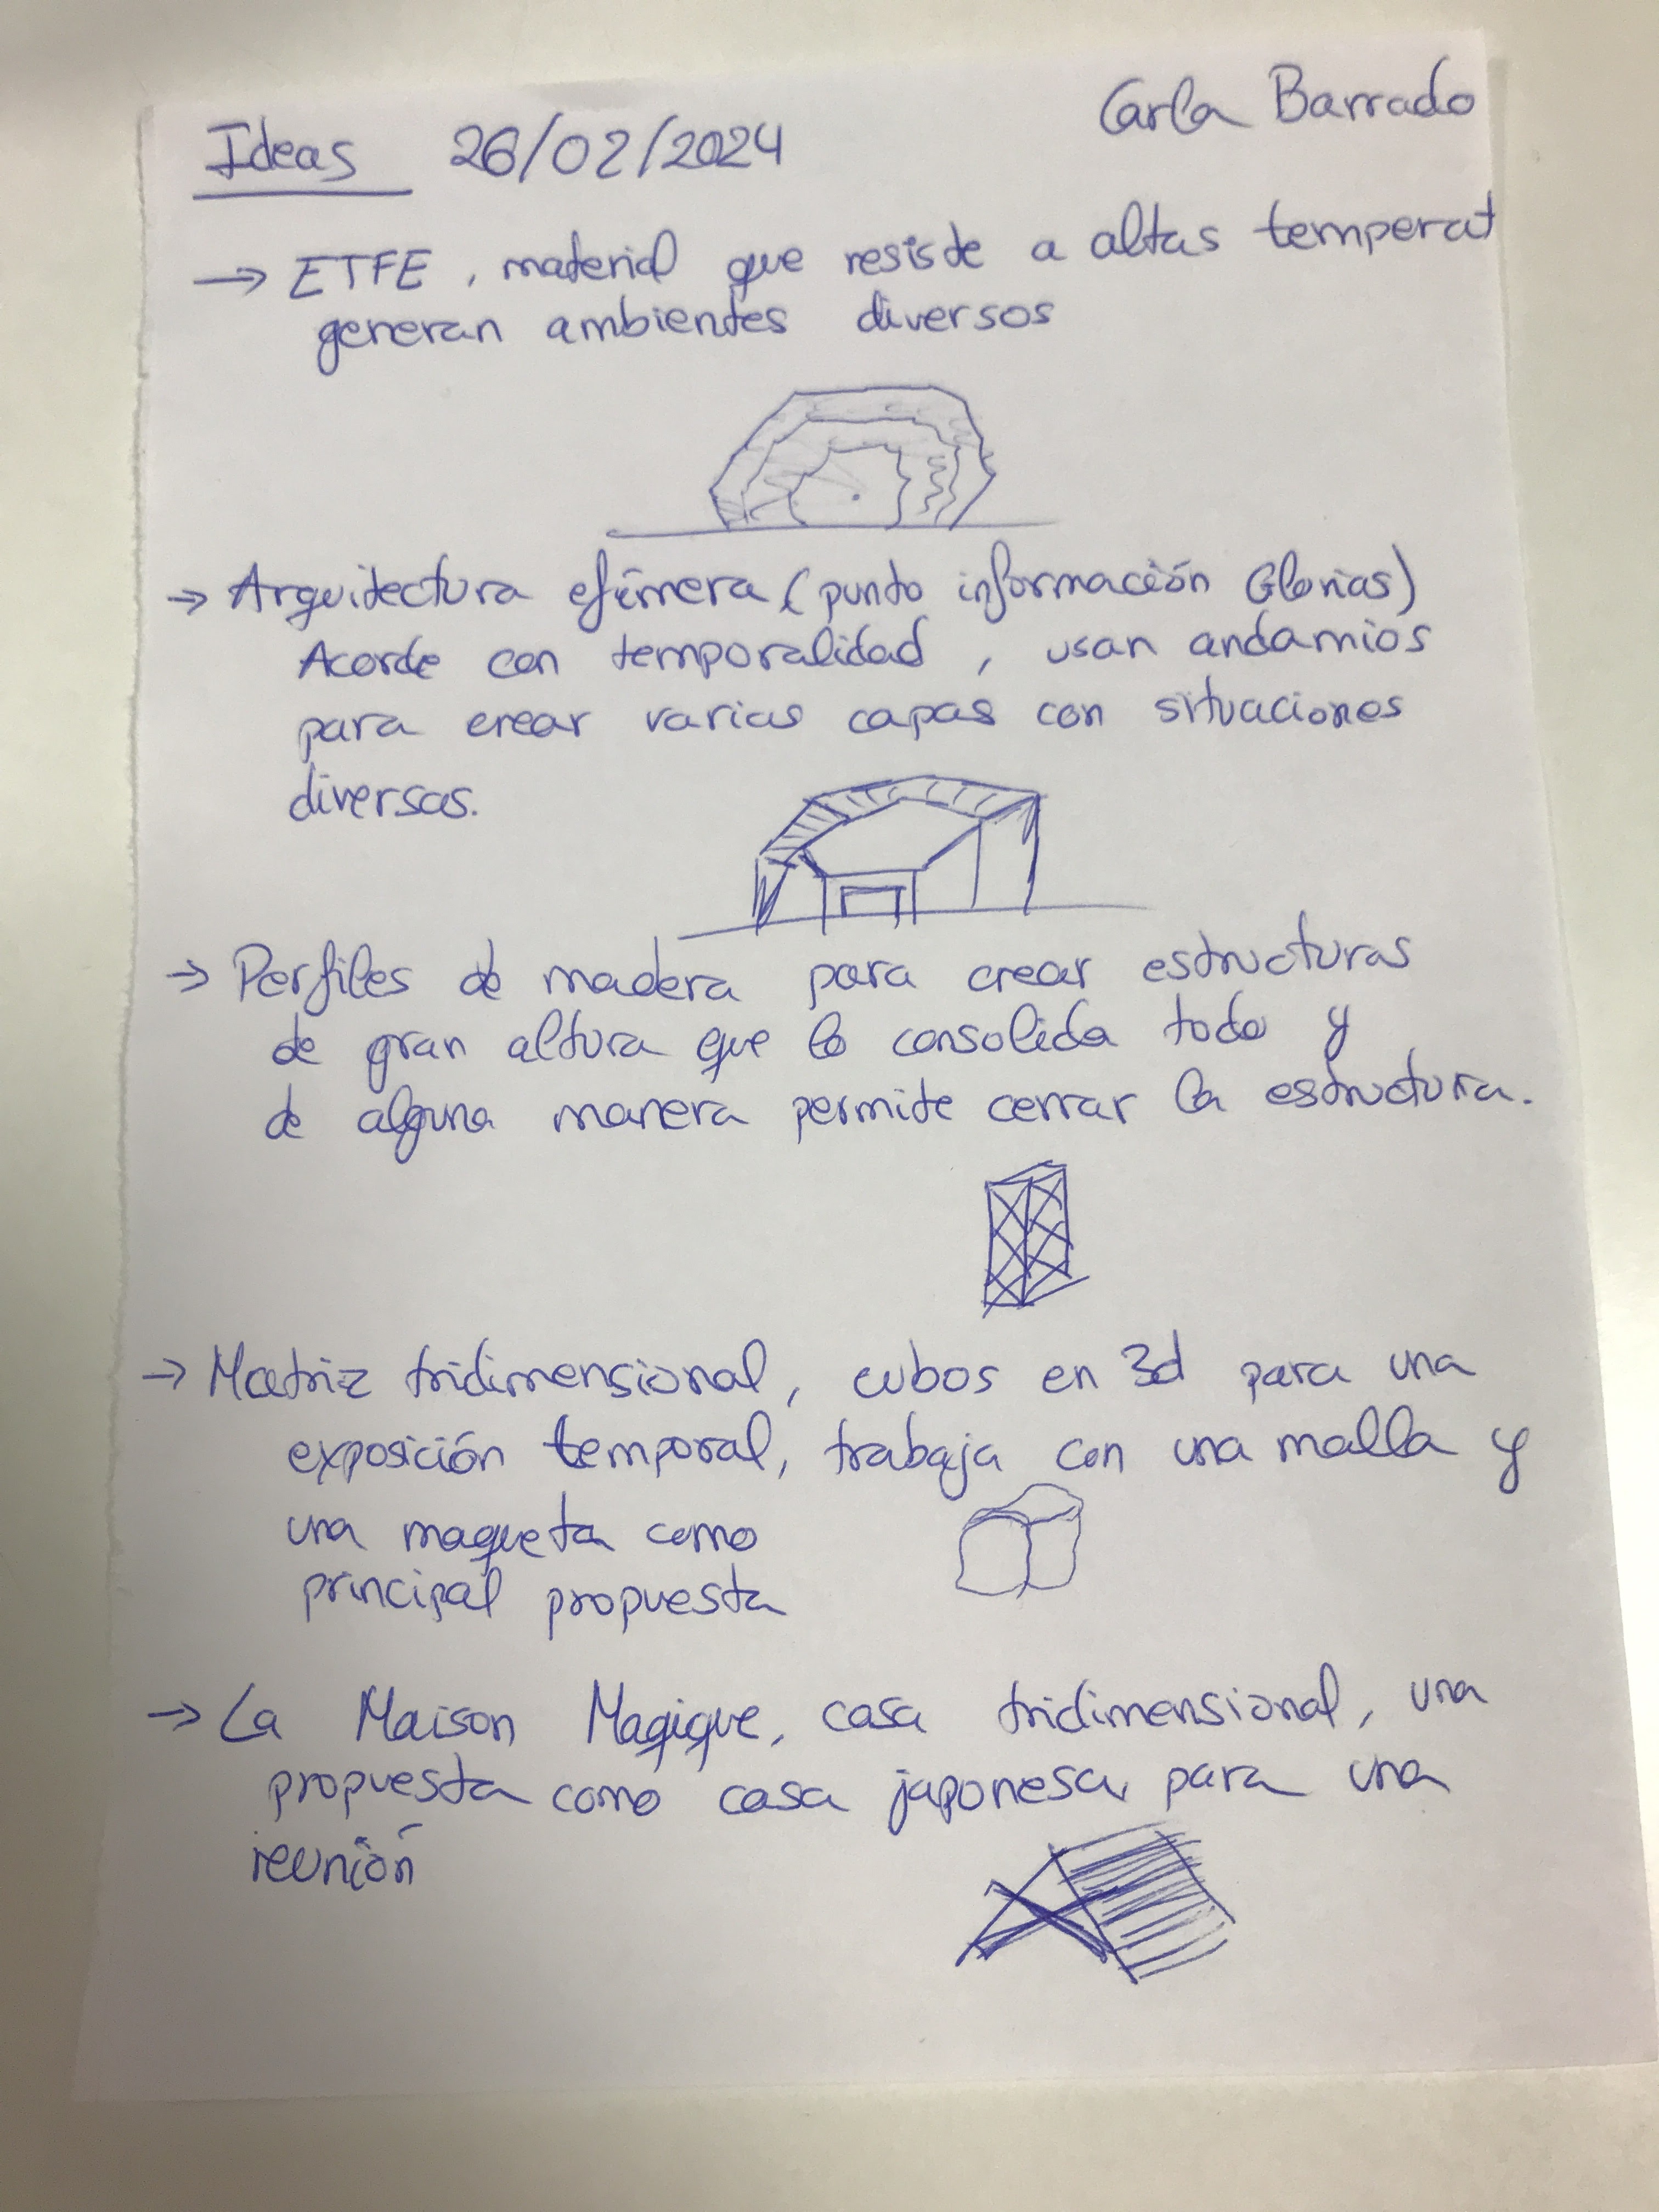 Carla Barrado
Ideas 26/02/2024
→ ETFE, material que resiste a altas temperat
generan ambientes diversos
→ Arquitectura efímera (punto información Glorias)
Acorde con temporalidad, usan andamios
para crear varias capas con situaciones
diversas.
→ Perfiles de madera para crear estructuras
de gran altura que lo consolida todo y
de alguna manera permite cerrar la estructura.
→ Matriz tridimensional, cubos en 3d para una
exposición temporal, trabaja con una malla y
una maqueta como
principal propuesta
→ La Maison Magique, casa tridimensional, una
propuesta como casa japonesa para una
reunión